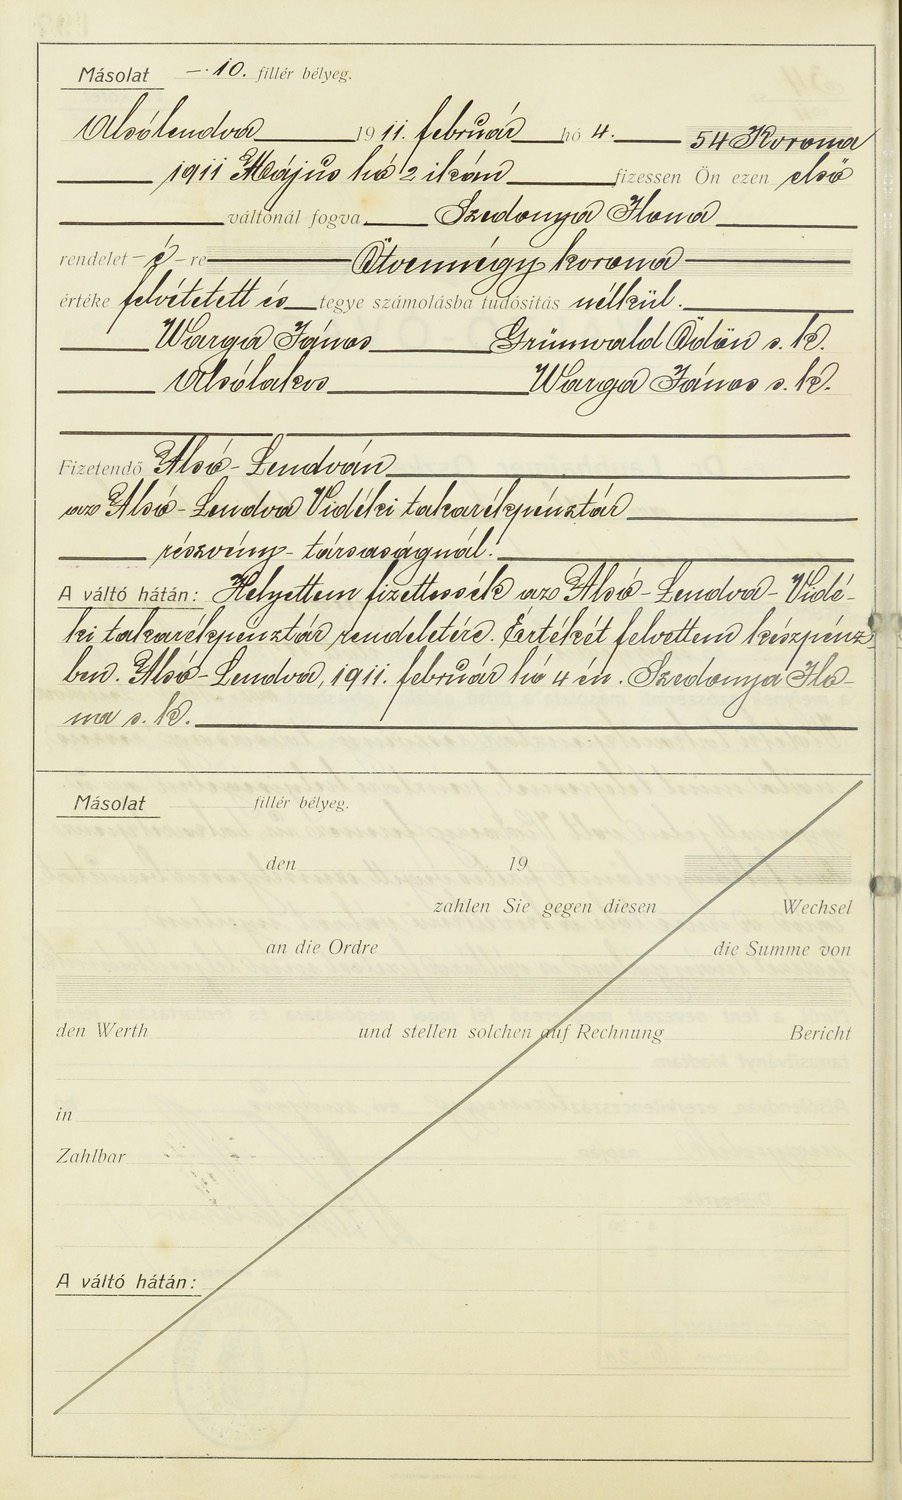 Másolat —·10. fillér bélyeg.
Alsólendva 1911. február hó 4. 54 Korona
1911 Május hó 2 ikán fizessen Ön ezen első
váltónál fogva Szedonya Ilona
rendelet – é – re Ötvennégy korona
értéke felvétetett és tegye számolásba tudósítás nélkül.
Warga János Grünwald Ödön s. k.
Alsólakos Warga János s. k.
Fizetendő Alsó-Lendván
az Alsó-Lendva Vidéki takarékpénztár
részvény-társaságnál.
A váltó hátán: Helyettem fizettessék az Alsó-Lendva-Vidé-
ki takarékpenztár rendeletére. Értékét felvettem készpénz-
ben. Alsó-Lendva, 1911. február hó 4 én. Szedonya Ilo-
na s. k.
Másolat fillér bélyeg.
den 19
zahlen Sie gegen diesen Wechsel
an die Ordre die Summe von
den Werth und stellen solchen auf Rechnung Bericht
in
Zahlbar
A váltó hátán: